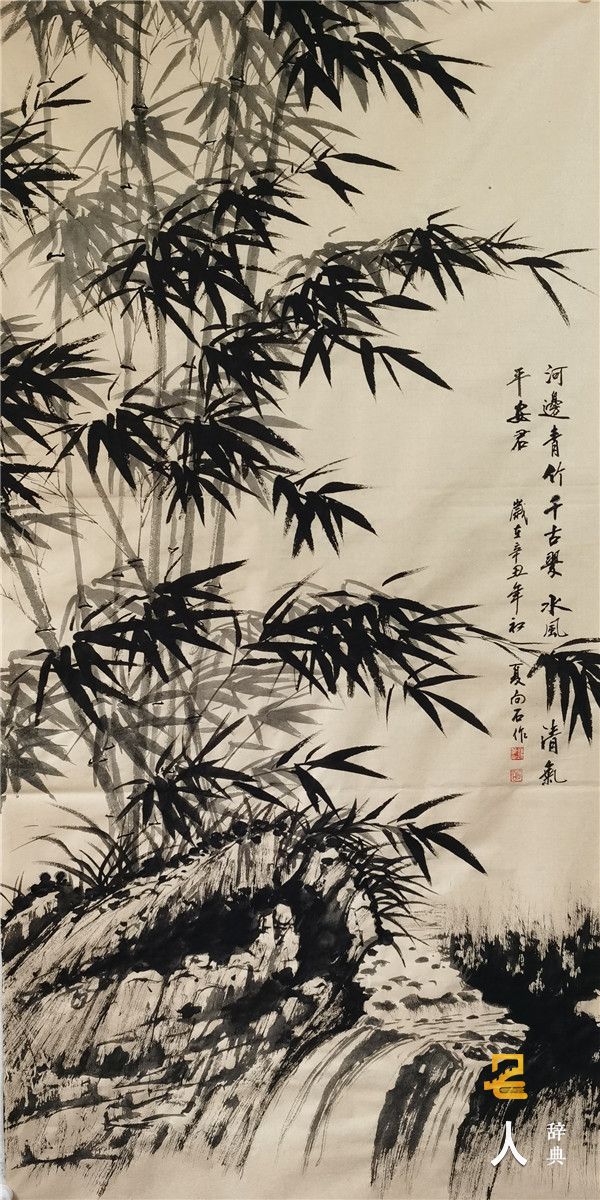 河邊青竹千古翠水風清氣
平安君
歲在辛丑年初夏向石作
名人
辞典